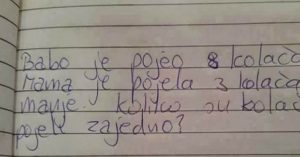 Babo je pojeo 8 kolača
Mama je pojela 3 kolača
manje. Koliko su kolač
pojeli zajedno?